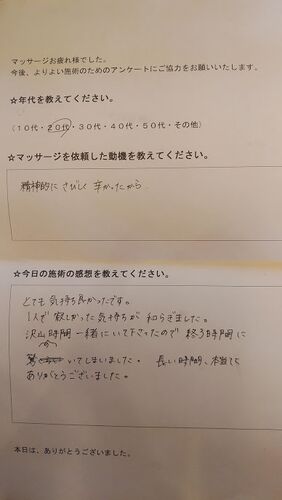 マッサージお疲れ様でした。
今後、よりよい施術のためのアンケートにご協力をお願いいたします。
☆年代を教えてください。
(10代・20代・30代・40代・50代・その他)
☆マッサージを依頼した動機を教えてください。
精神的に さびしく 辛かったから
☆今日の施術の感想を教えてください。
とても 気持ち良かったです。
1人で 寂しかった 気持ちが 和らぎました。
沢山 時間 一緒に いて下さったので 終了時間に
いてしまいました。 長い時間、本当に
ありがとうございました。
本日は、ありがとうございました。